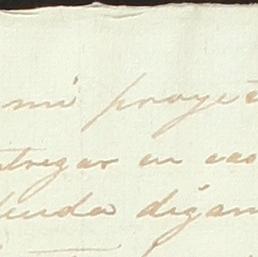 mi proyec
ntregar en cas
tenda digam